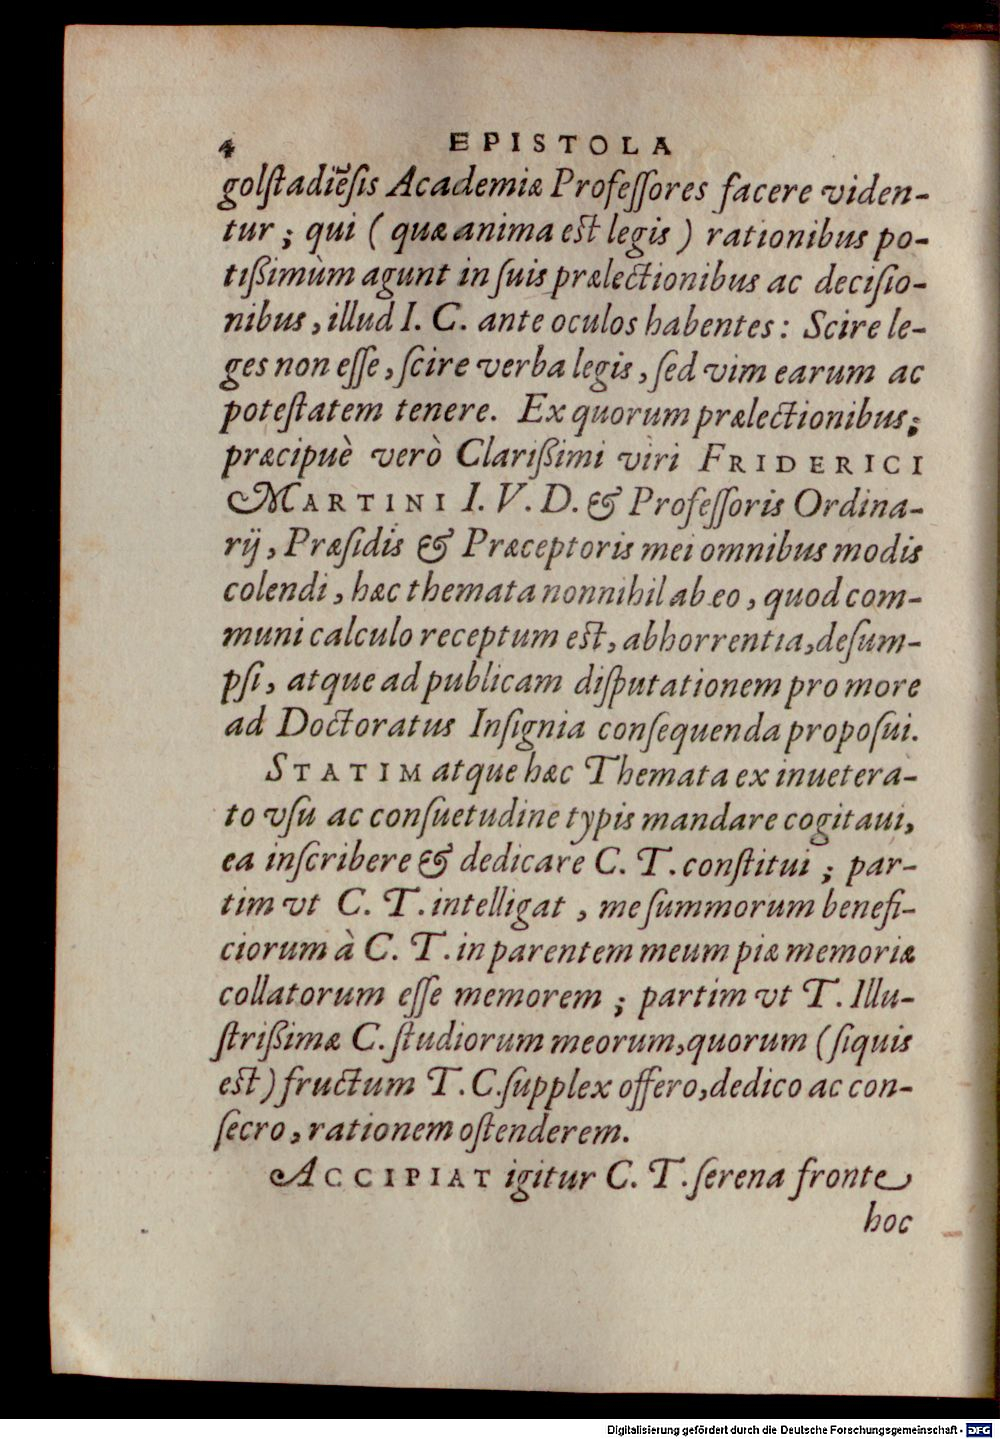 4 EPISTOLA
golſtadiẽſis Academiæ Profeſſores facere viden-
tur; qui ( quæ anima eſt legis ) rationibus po-
tiſſimùm agunt in ſuis prælectionibus ac deciſio-
nibus, illud I. C. ante oculos habentes: Scire le-
ges non eſſe, ſcire verba legis, ſed vim earum ac
poteſtatem tenere. Ex quorum prælectionibus;
præcipuè verò Clariſſimi viri FRIDERICI
MARTINI I. V. D. & Profeſſoris Ordina-
rij, Præſidis & Præceptoris mei omnibus modis
colendi, hæc themata nonnihil ab eo, quod com-
muni calculo receptum eſt, abhorrentia, deſum-
pſi, atque ad publicam diſputationem pro more
ad Doctoratus Inſignia conſequenda propoſui.
STATIM atque hæc Themata ex inuetera-
to vſu ac conſuetudine typis mandare cogitaui,
ea inſcribere & dedicare C. T. conſtitui; par-
tim vt C. T. intelligat, me ſummorum benefi-
ciorum à C. T. in parentem meum piæ memoriæ
collatorum eſſe memorem; partim vt T. Illu-
ſtriſſimæ C. ſtudiorum meorum, quorum (ſiquis
eſt) fructum T. C. ſupplex offero, dedico ac con-
ſecro, rationem oſtenderem.
ACCIPIAT igitur C. T. ſerena fronte
hoc
Digitalisierung gefördert durch die Deutsche Forschungsgemeinschaft - DFG